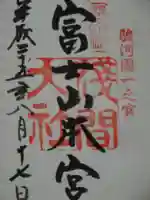 駿河國一之宮
富士山本宮
浅間
大社
平成二十五年八月十七日